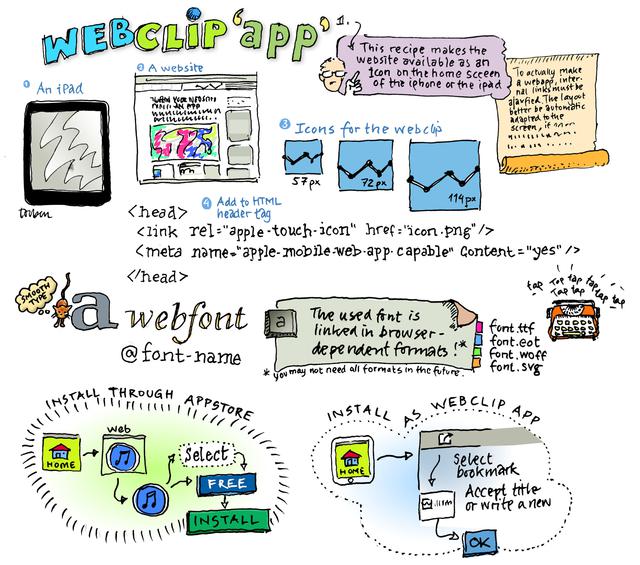 WEBCLIP 'app'
1.
This recipe makes the
website available as an
Icon on the home screen
of the iphone or the ipad
To actually make
a webapp, inter-
nal links must be
ajaxfied. The layout
better be automatic
adapted to the
screen, if
1 An iPad
2 A website
3 Icons for the webclip
57 px
72 px
114 px
4 Add to HTML
header tag
<head>
<link rel="apple-touch-icon" href="icon.png"/>
<meta name="apple-mobile-web-app capable" content="yes"/>
</head>
SMOOTH
TYPE
a webfont
@font-name
a
The used font is
linked in browser-
dependent formats!*
* you may not need all formats in the future.
font.ttf
font.eot
font.woff
font.svg
tap Tap Tap tap tap tap
Tap tap
INSTALL THROUGH APPSTORE
HOME
Web
Select
FREE
INSTALL
INSTALL AS WEBCLIP APP
HOME
Select
bookmark
Accept title
or write a new
OK